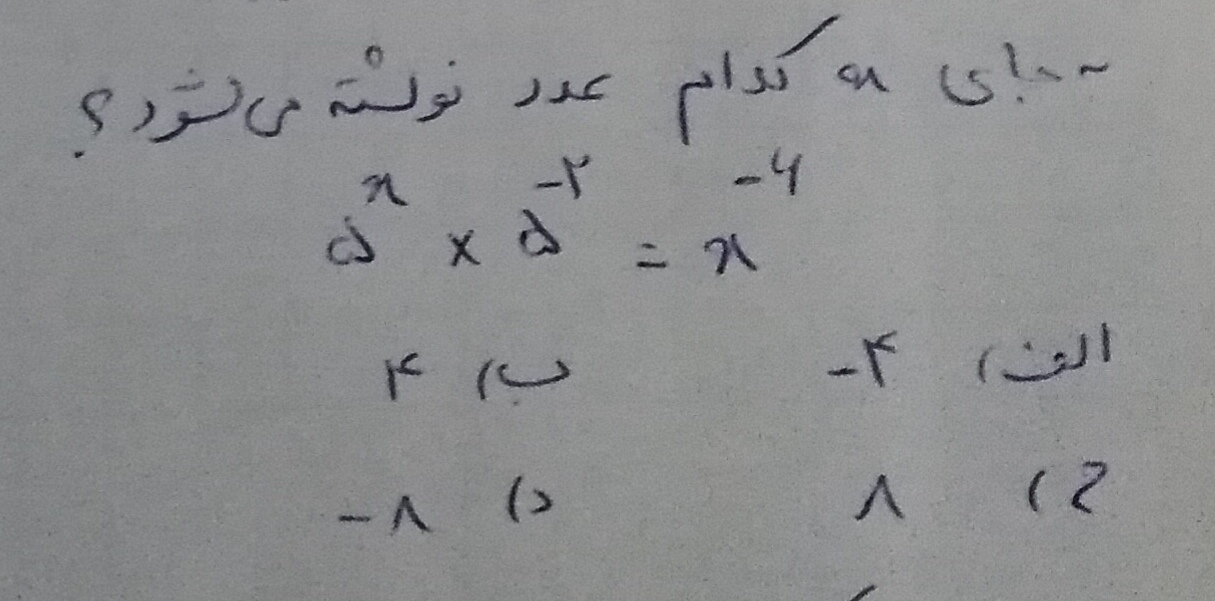 به جای x کدام عدد نوشته می‌شود؟
۵^x × ۵^-۲ = x^-۶
الف) -۴ ب) ۴
ج) ۸ د) -۸